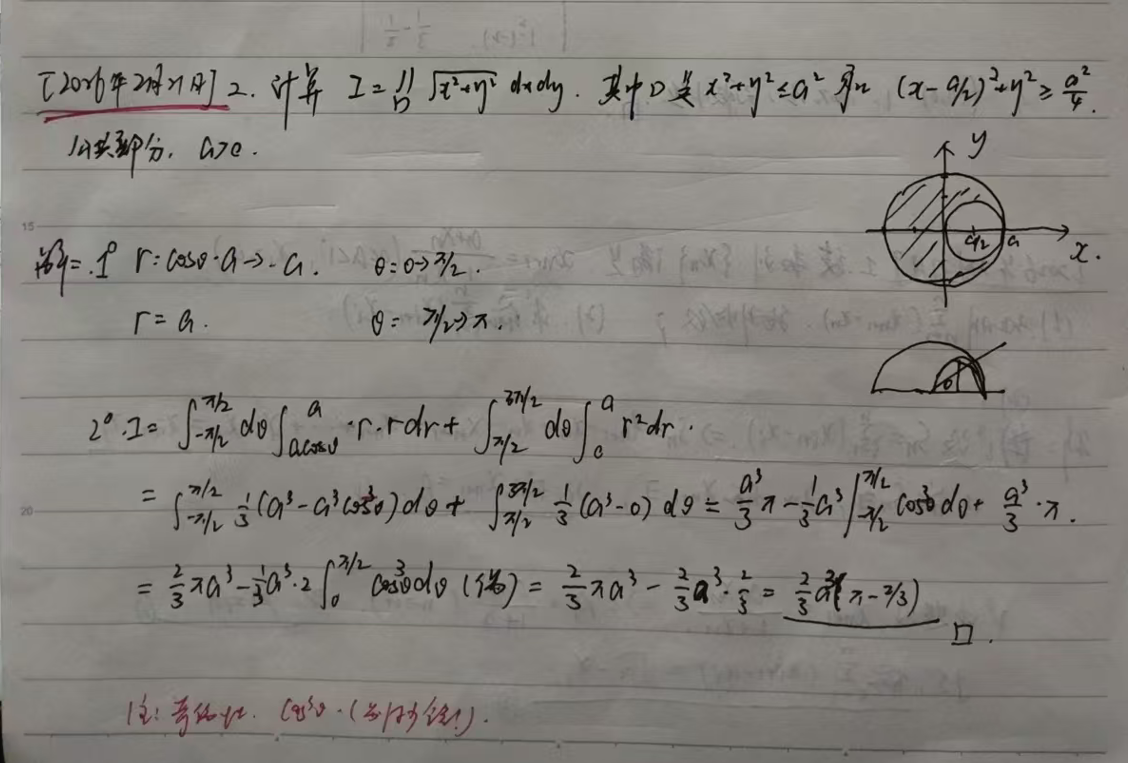 [2026年2月21日] 2. 计算 I = ∬_D √(x²+y²) dxdy. 其中D是 x²+y² ≤ a² 和 (x-a/2)²+y² ≥ a²/4.
公共部分, a>0.
y
a/2 a x.
解: 1° r: cosθ·a → a. θ: 0→π/2.
r = a. θ = π/2→π.
2°. I = ∫_{-π/2}^{π/2} dθ ∫_{acosθ}^{a} ·r·rdr + ∫_{π/2}^{3π/2} dθ ∫_0^a r²dr.
= ∫_{-π/2}^{π/2} 1/3 (a³ - a³cos³θ) dθ + ∫_{π/2}^{3π/2} 1/3 (a³-0) dθ = a³/3 π - 1/3 a³ ∫_{-π/2}^{π/2} cos³θ dθ + a³/3 · π.
= 2/3 πa³ - 1/3 a³·2 ∫_0^{π/2} cos³θ dθ (偶) = 2/3 πa³ - 2/3 a³ · 2/3 = 2/3 a³(π-2/3)
□.
注: 奇偶性. cos³θ.
15
20